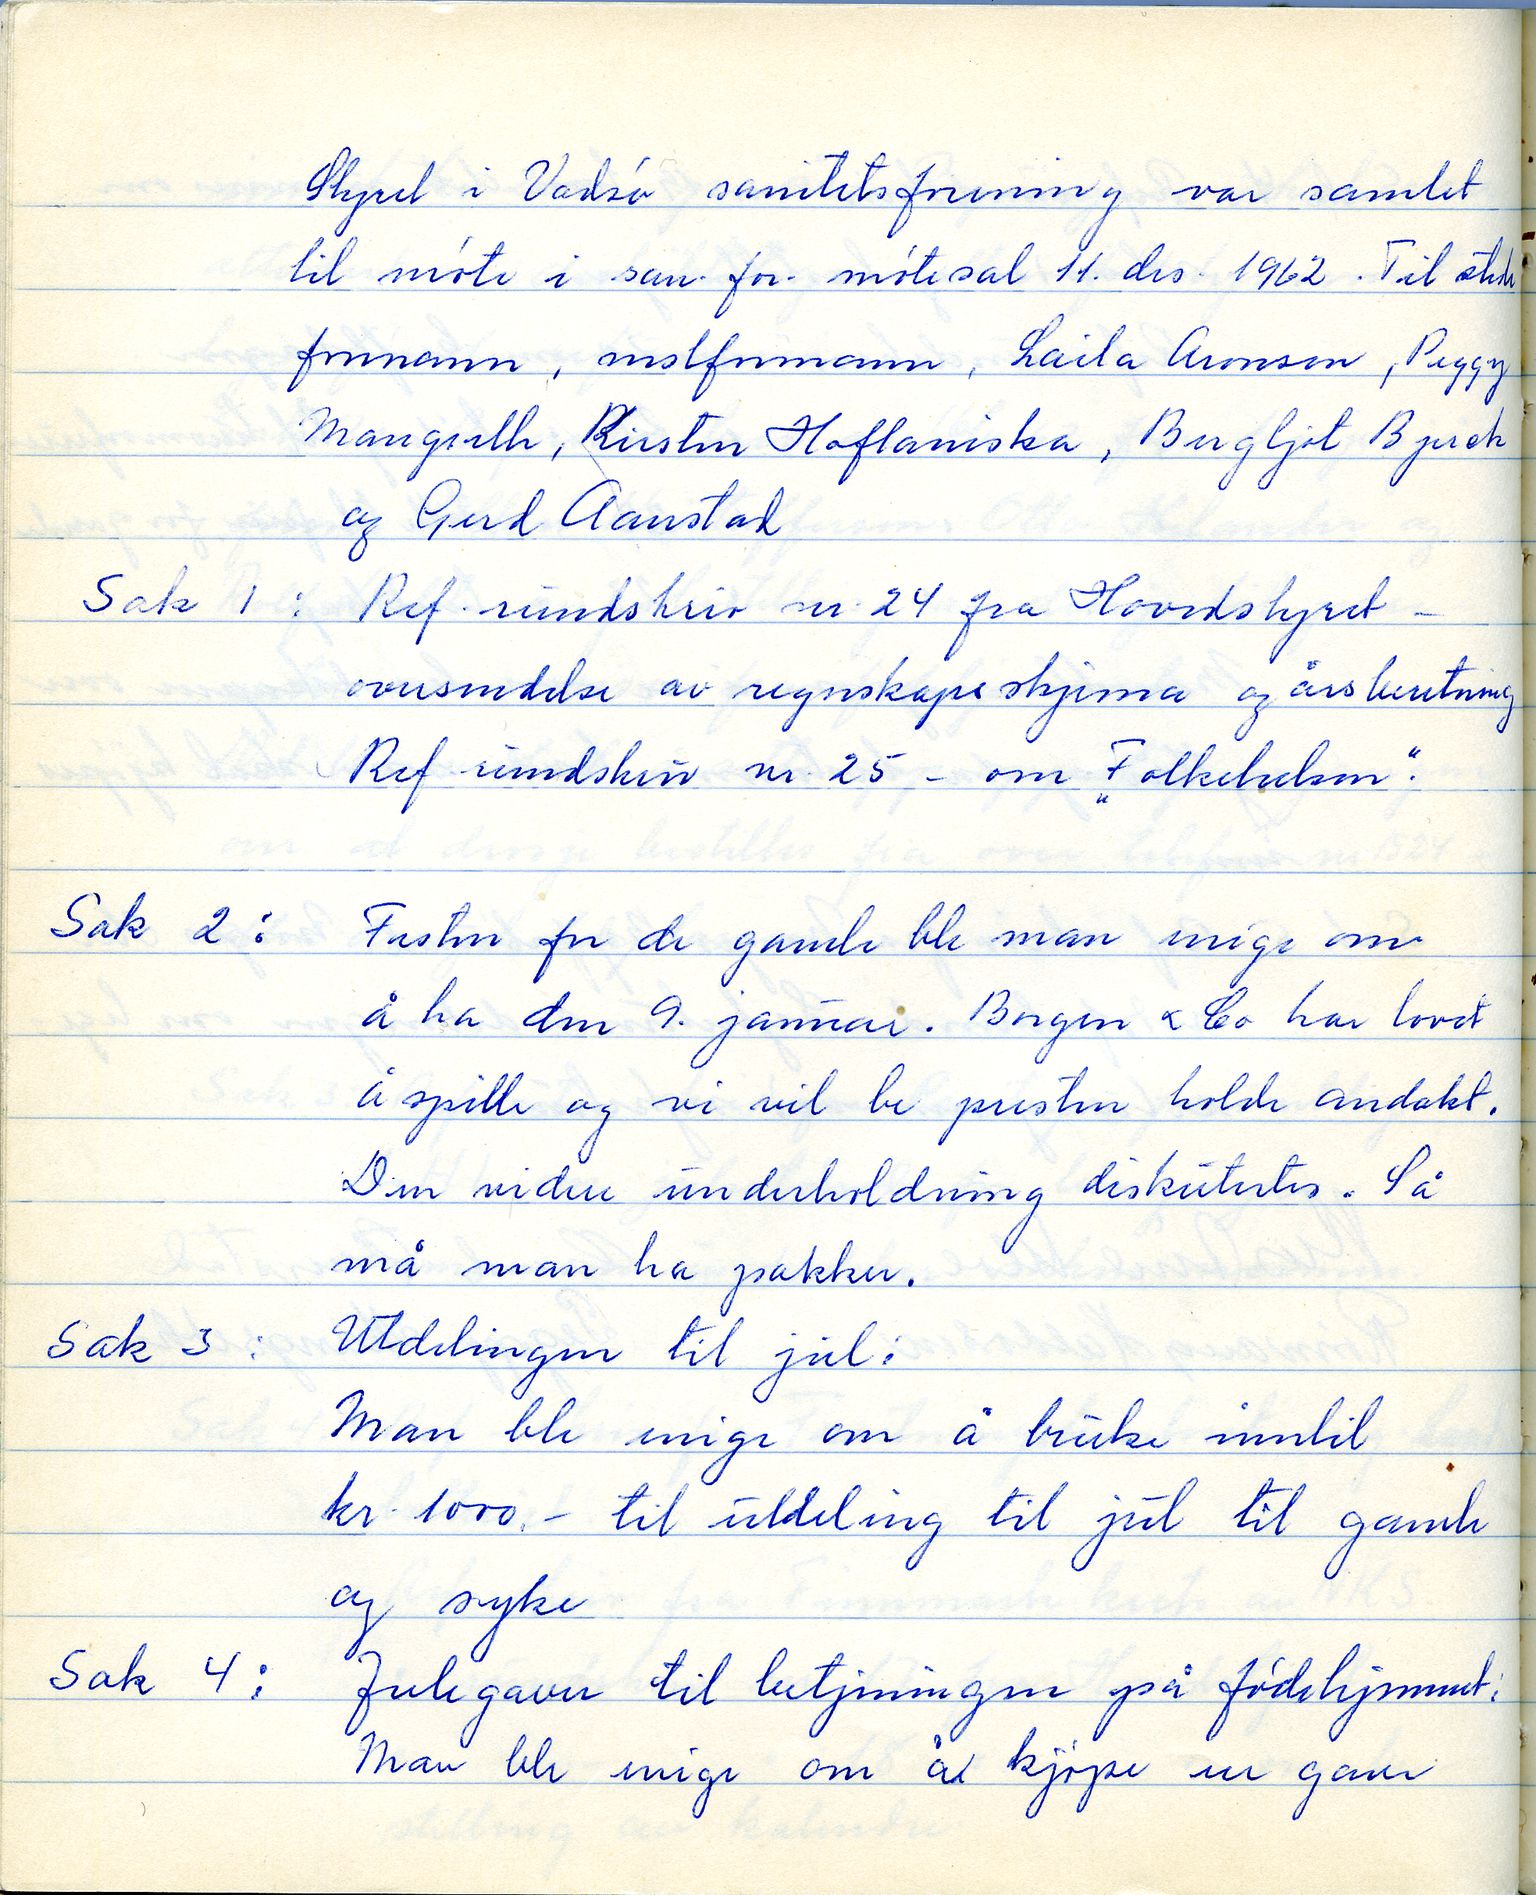 Styret i Vadsø sanitetsforening var samlet
til møte i san. for. møtesal 11. des. 1962. Til stede
formann, nestformann, Laila Aronsen, Peggy
Kirsten Hoflaniska, Bergljot
og Gerd Aanstad
Sak 1: Ref. rundskriv nr. 24 fra Hovedstyret –
oversendelse av regnskapsskjema og årsberetning
Ref rundskriv nr. 25 – om „Folkehelsen“.
Sak 2: Festen for de gamle ble man enige om
å ha den 9. januar. Borgen & Co har lovet
å spille og vi vil be presten holde andakt.
Den videre underholdning diskutertes. Så
må man ha pakker.
Sak 3: Utdelingen til jul:
Man ble enige om å bruke inntil
kr. 1000.– til utdeling til jul til gamle
og syke
Sak 4: Julegaver til betjeningen på fødehjemmet:
Man ble enige om å kjøpe en gave